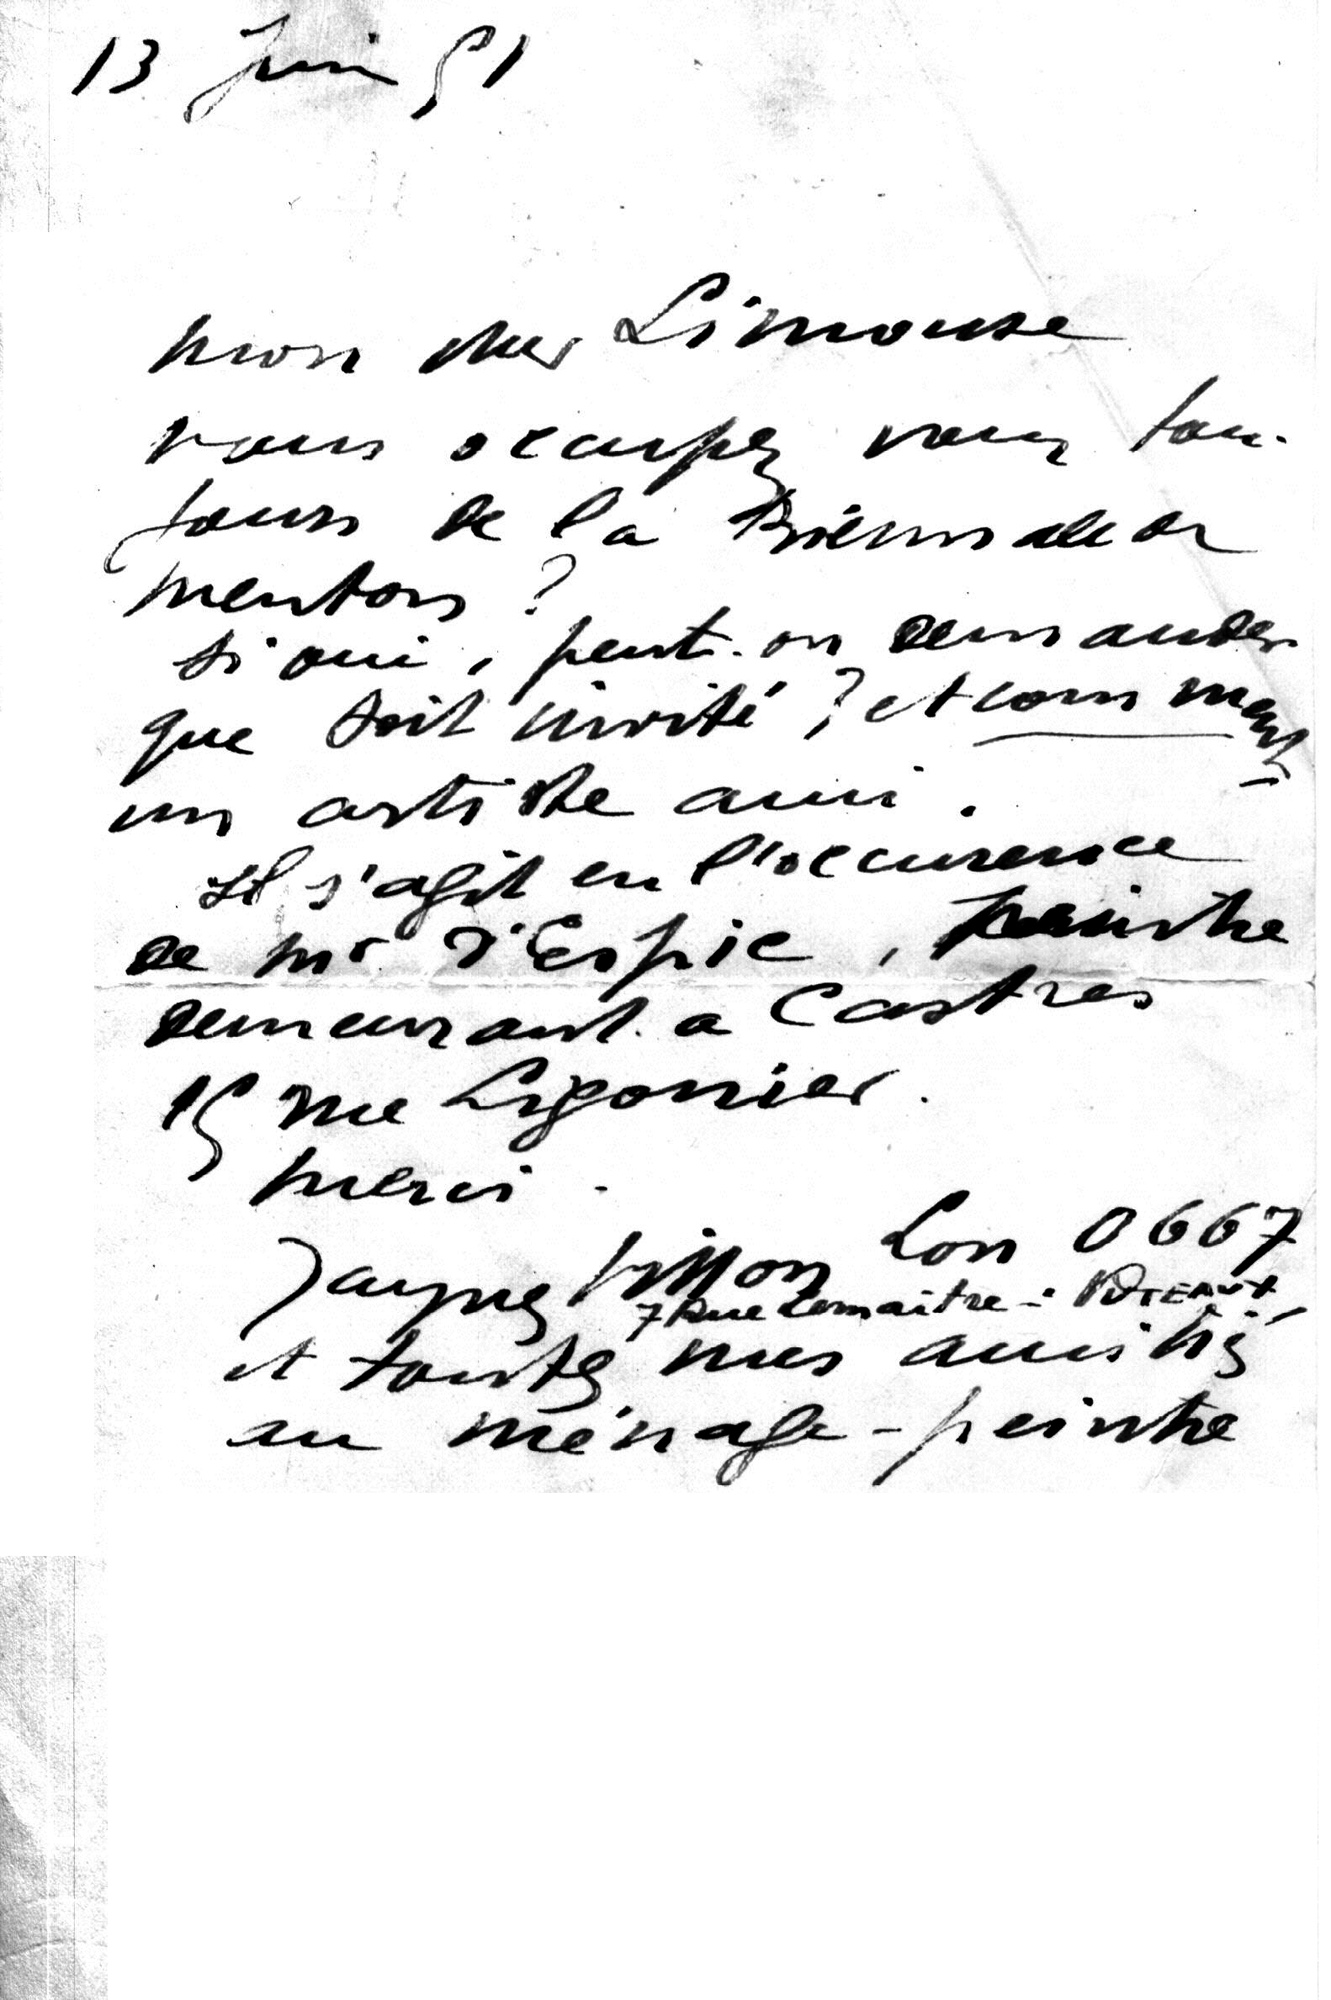 13 Juin 51
mon cher Limouse
vous occupez vous tou-
jours de la Biennale de
menton ?
Si oui, peut-on demander
que soit invité ? et comment
un artiste ami.
Il s'agit en l'occurence
de Mr d'Espic, peintre
demeurant a Castres
15 rue Ligonier.
merci.
Jacques Villon Lon 0667
7 Rue Lemaitre - PUTEAUX
et toutes mes amitiés
au ménage-peintre